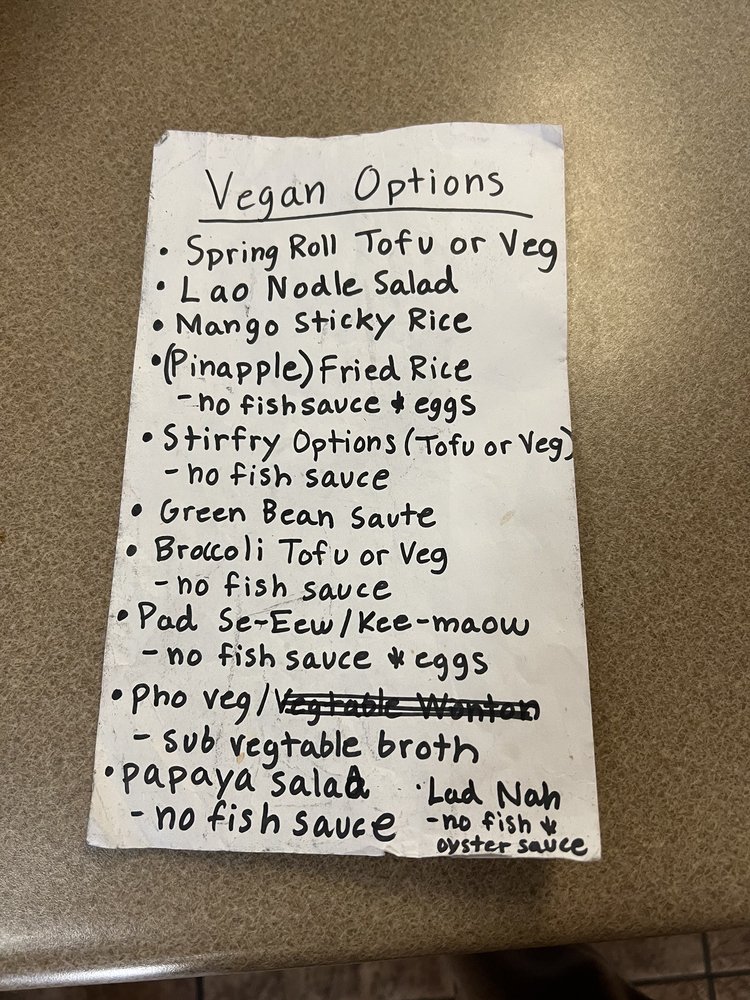 Vegan Options
• Spring Roll Tofu or Veg
• Lao Nodle Salad
• Mango Sticky Rice
• (Pinapple) Fried Rice
- no fish sauce & eggs
• Stirfry Options (Tofu or Veg)
- no fish sauce
• Green Bean Saute
• Broccoli Tofu or Veg
- no fish sauce
• Pad Se-Eew/Kee-maow
- no fish sauce & eggs
• Pho veg/Vegtable Wonton
- sub vegtable broth
• papaya salad
- no fish sauce
• Lad Nah
- no fish &
oyster sauce